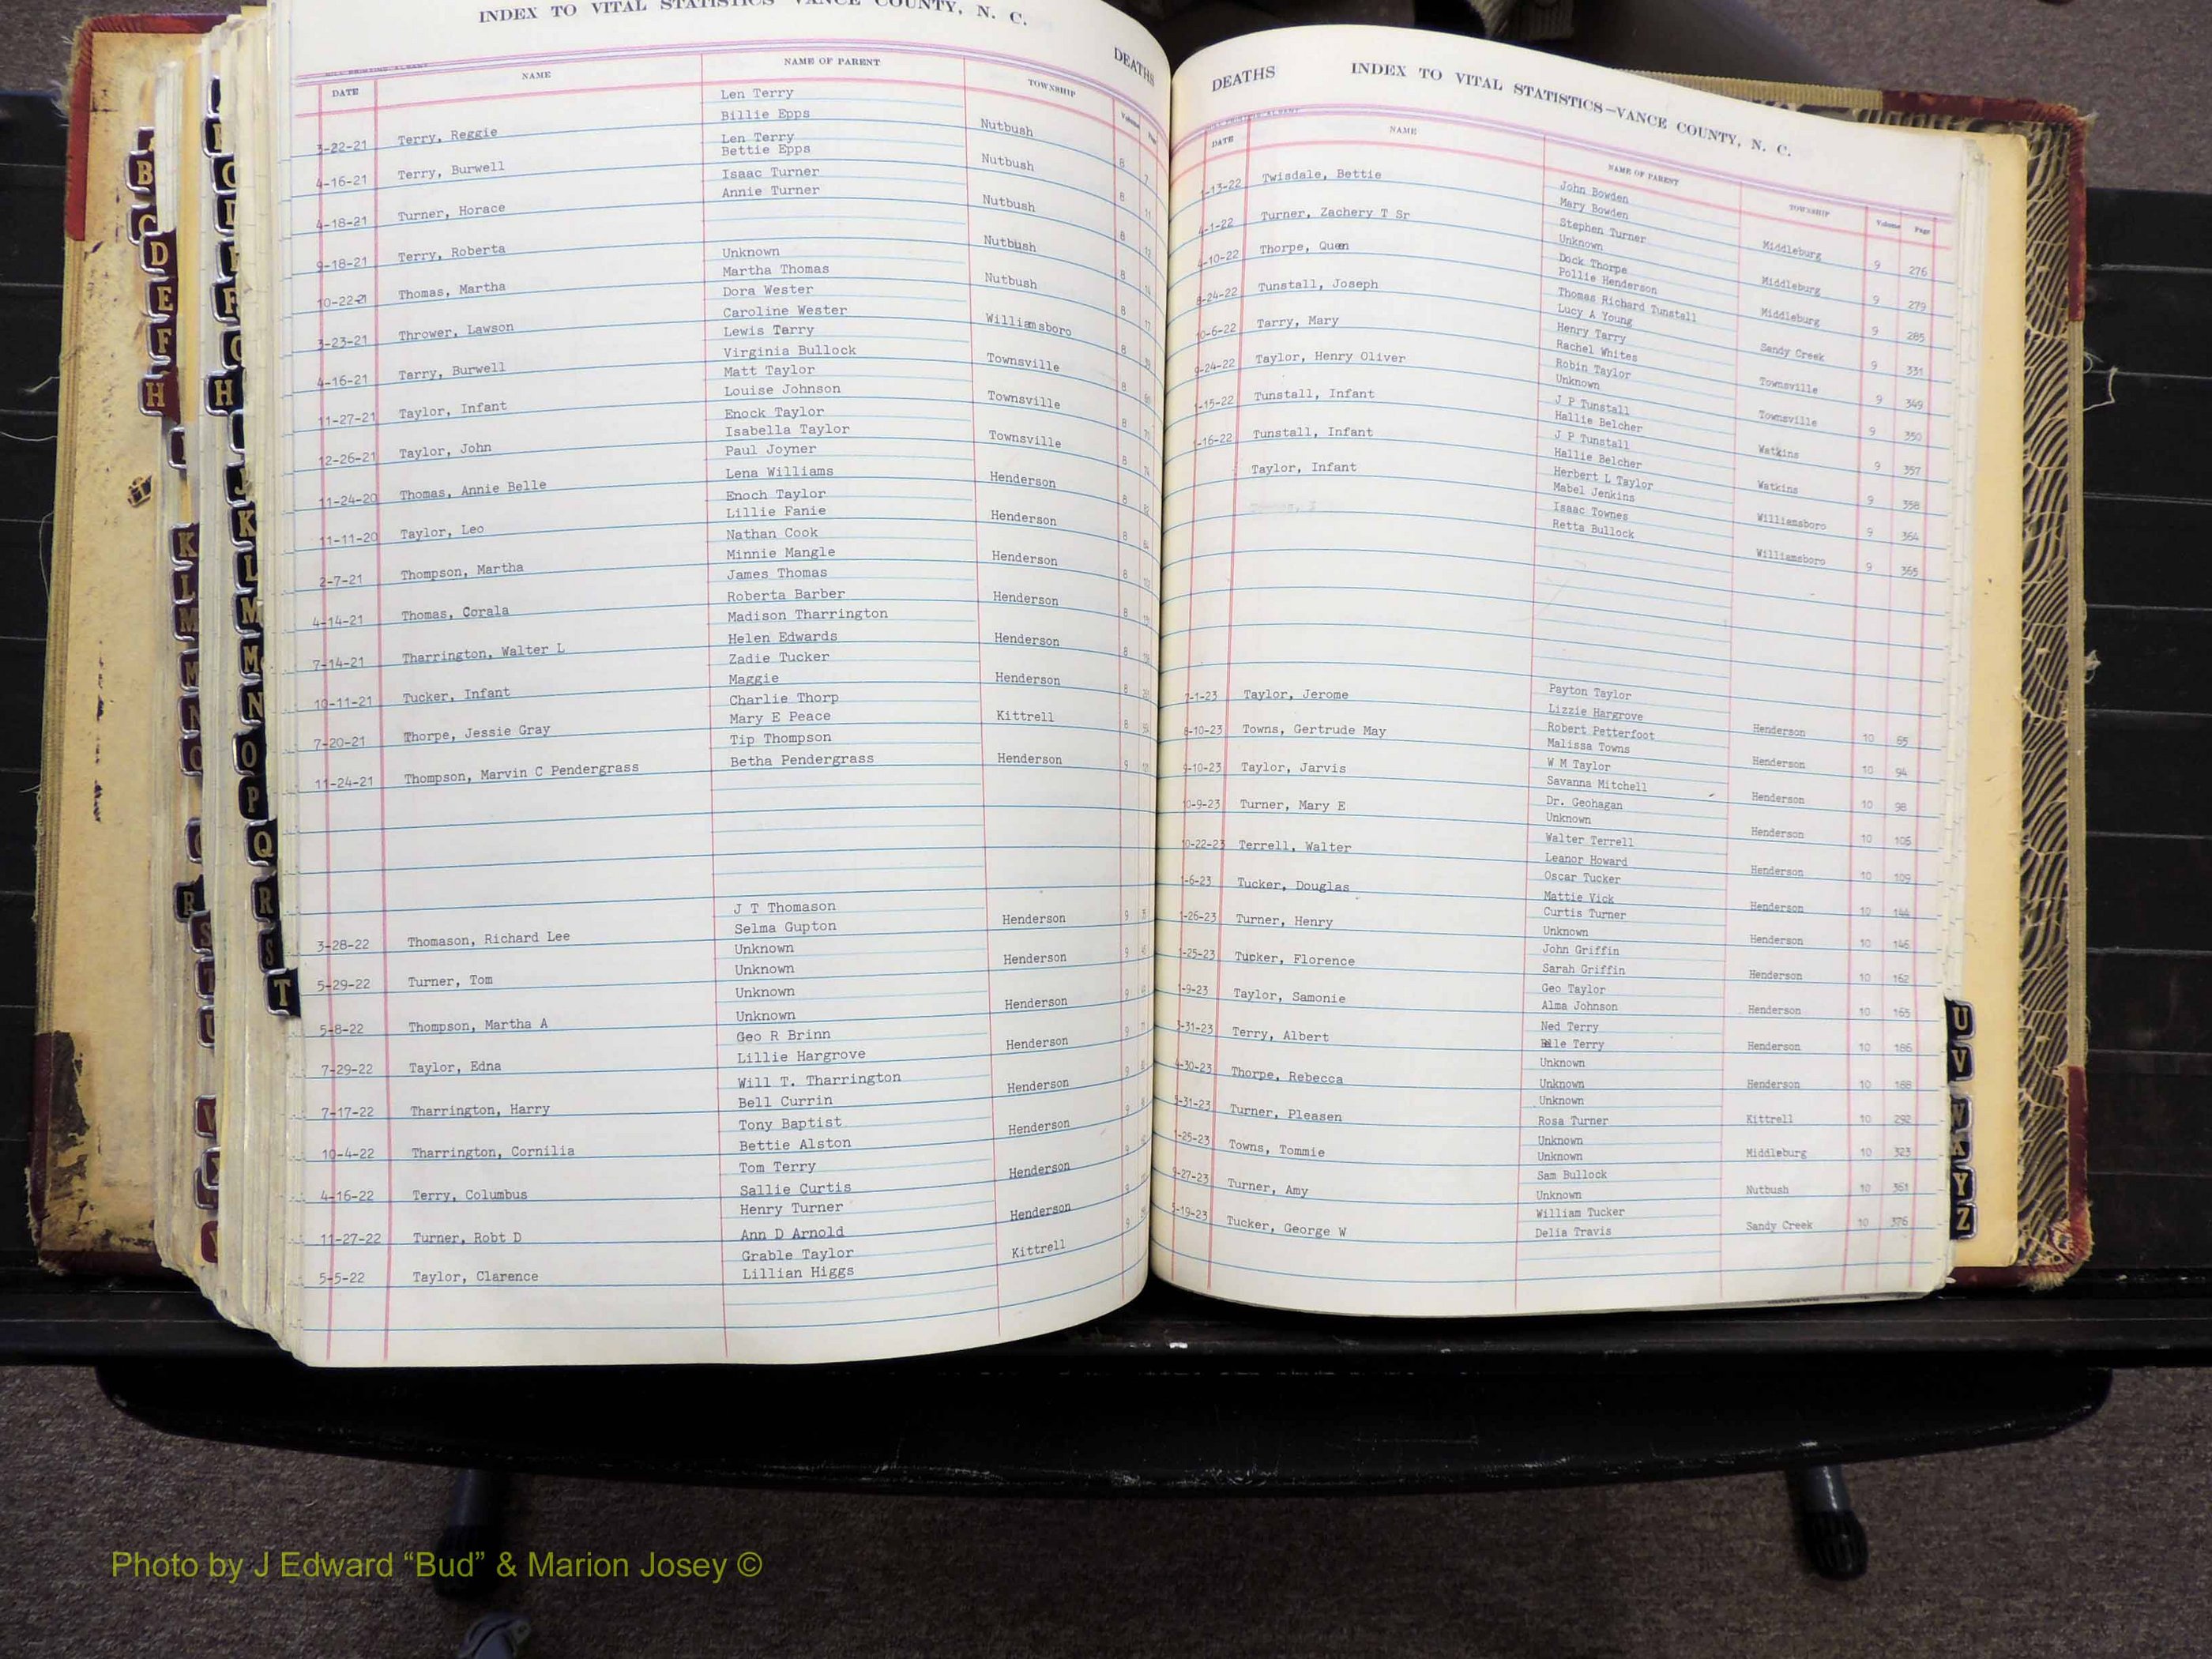 INDEX TO VITAL STATISTICS VANCE COUNTY, N. C.
DEATHS
DATE NAME NAME OF PARENT TOWNSHIP Volume Page
Len Terry
3-22-21 Terry, Reggie Billie Epps Nutbush 8
Len Terry
4-16-21 Terry, Burwell Bettie Epps Nutbush 8
Isaac Turner
4-18-21 Turner, Horace Annie Turner Nutbush 8
9-18-21 Terry, Roberta Nutbush 8
Unknown
10-22-21 Thomas, Martha Martha Thomas Nutbush 8
Dora Wester
3-23-21 Thrower, Lawson Caroline Wester Williamsboro 8
Lewis Tarry
4-16-21 Tarry, Burwell Virginia Bullock Townsville 8
Matt Taylor
11-27-21 Taylor, Infant Louise Johnson Townsville 8
Enock Taylor
12-26-21 Taylor, John Isabella Taylor Townsville 8
Paul Joyner
11-24-20 Thomas, Annie Belle Lena Williams Henderson 8
Enoch Taylor
11-11-20 Taylor, Leo Lillie Fanie Henderson 8
Nathan Cook
2-7-21 Thompson, Martha Minnie Mangle Henderson 8
James Thomas
4-14-21 Thomas, Corala Roberta Barber Henderson 8
Madison Tharrington
7-14-21 Tharrington, Walter L Helen Edwards Henderson 8
Zadie Tucker
10-11-21 Tucker, Infant Maggie Henderson 8
Charlie Thorp
7-20-21 Thorpe, Jessie Gray Mary E Peace Kittrell 8
Tip Thompson
11-24-21 Thompson, Marvin C Pendergrass Betha Pendergrass Henderson 9
J T Thomason
3-28-22 Thomason, Richard Lee Selma Gupton Henderson 9
Unknown
5-29-22 Turner, Tom Unknown Henderson 9
Unknown
5-8-22 Thompson, Martha A Unknown Henderson 9
Geo R Brinn
7-29-22 Taylor, Edna Lillie Hargrove Henderson 9
Will T. Tharrington
7-17-22 Tharrington, Harry Bell Currin Henderson 9
Tony Baptist
10-4-22 Tharrington, Cornilia Bettie Alston Henderson 9
Tom Terry
4-16-22 Terry, Columbus Sallie Curtis Henderson 9
Henry Turner
11-27-22 Turner, Robt D Ann D Arnold Henderson 9
Grable Taylor
5-5-22 Taylor, Clarence Lillian Higgs Kittrell 9
DEATHS INDEX TO VITAL STATISTICS—VANCE COUNTY, N. C.
DATE NAME NAME OF PARENT TOWNSHIP Volume Page
John Bowden
1-13-22 Twisdale, Bettie Mary Bowden Middleburg 9 276
Stephen Turner
4-1-22 Turner, Zachery T Sr Unknown Middleburg 9 279
Dock Thorpe
4-10-22 Thorpe, Queen Pollie Henderson Middleburg 9 285
Thomas Richard Tunstall
8-24-22 Tunstall, Joseph Lucy A Young Sandy Creek 9 331
Henry Tarry
10-6-22 Tarry, Mary Rachel Whites Townsville 9 349
Robin Taylor
9-24-22 Taylor, Henry Oliver Unknown Townsville 9 350
J P Tunstall
1-15-22 Tunstall, Infant Hallie Belcher Watkins 9 357
J P Tunstall
1-16-22 Tunstall, Infant Hallie Belcher Watkins 9 358
Herbert L Taylor
Taylor, Infant Mabel Jenkins Williamsboro 9 364
Isaac Townes
Retta Bullock Williamsboro 9 365
Payton Taylor
7-1-23 Taylor, Jerome Lizzie Hargrove Henderson 10 65
Robert Petterfoot
8-10-23 Towns, Gertrude May Malissa Towns Henderson 10 94
W M Taylor
9-10-23 Taylor, Jarvis Savanna Mitchell Henderson 10 98
Dr. Geohagan
10-9-23 Turner, Mary E Unknown Henderson 10 105
Walter Terrell
10-22-23 Terrell, Walter Leanor Howard Henderson 10 109
Oscar Tucker
1-6-23 Tucker, Douglas Mattie Vick Henderson 10 144
Curtis Turner
1-26-23 Turner, Henry Unknown Henderson 10 146
John Griffin
1-25-23 Tucker, Florence Sarah Griffin Henderson 10 162
Geo Taylor
1-9-23 Taylor, Samonie Alma Johnson Henderson 10 165
Ned Terry
-31-23 Terry, Albert Belle Terry Henderson 10 186
Unknown
4-30-23 Thorpe, Rebecca Unknown Henderson 10 188
Unknown
-31-23 Turner, Pleasen Rosa Turner Kittrell 10 292
Unknown
1-25-23 Towns, Tommie Unknown Middleburg 10 323
Sam Bullock
9-27-23 Turner, Amy Unknown Nutbush 10 361
William Tucker
5-19-23 Tucker, George W Delia Travis Sandy Creek 10 376
B
C
D
E
F
H
K
L
M
M
N
O
Q
R
S
T
U
H
J
K
L
M
M
N
O
P
Q
R
S
T
U
V
W
Y
Z
Photo by J Edward “Bud” & Marion Josey ©